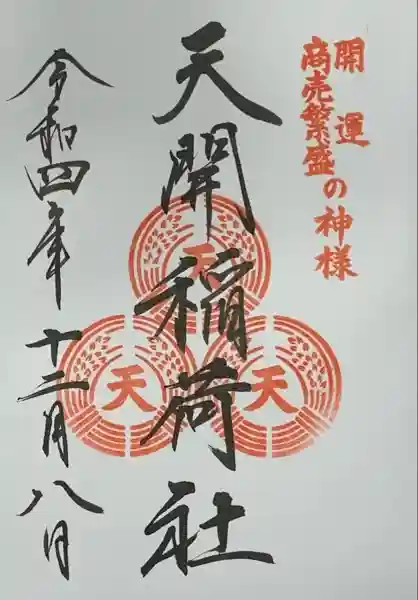 開運
商売繁盛の神様
天開稲荷社
令和四年
十二月八日
天
天
天